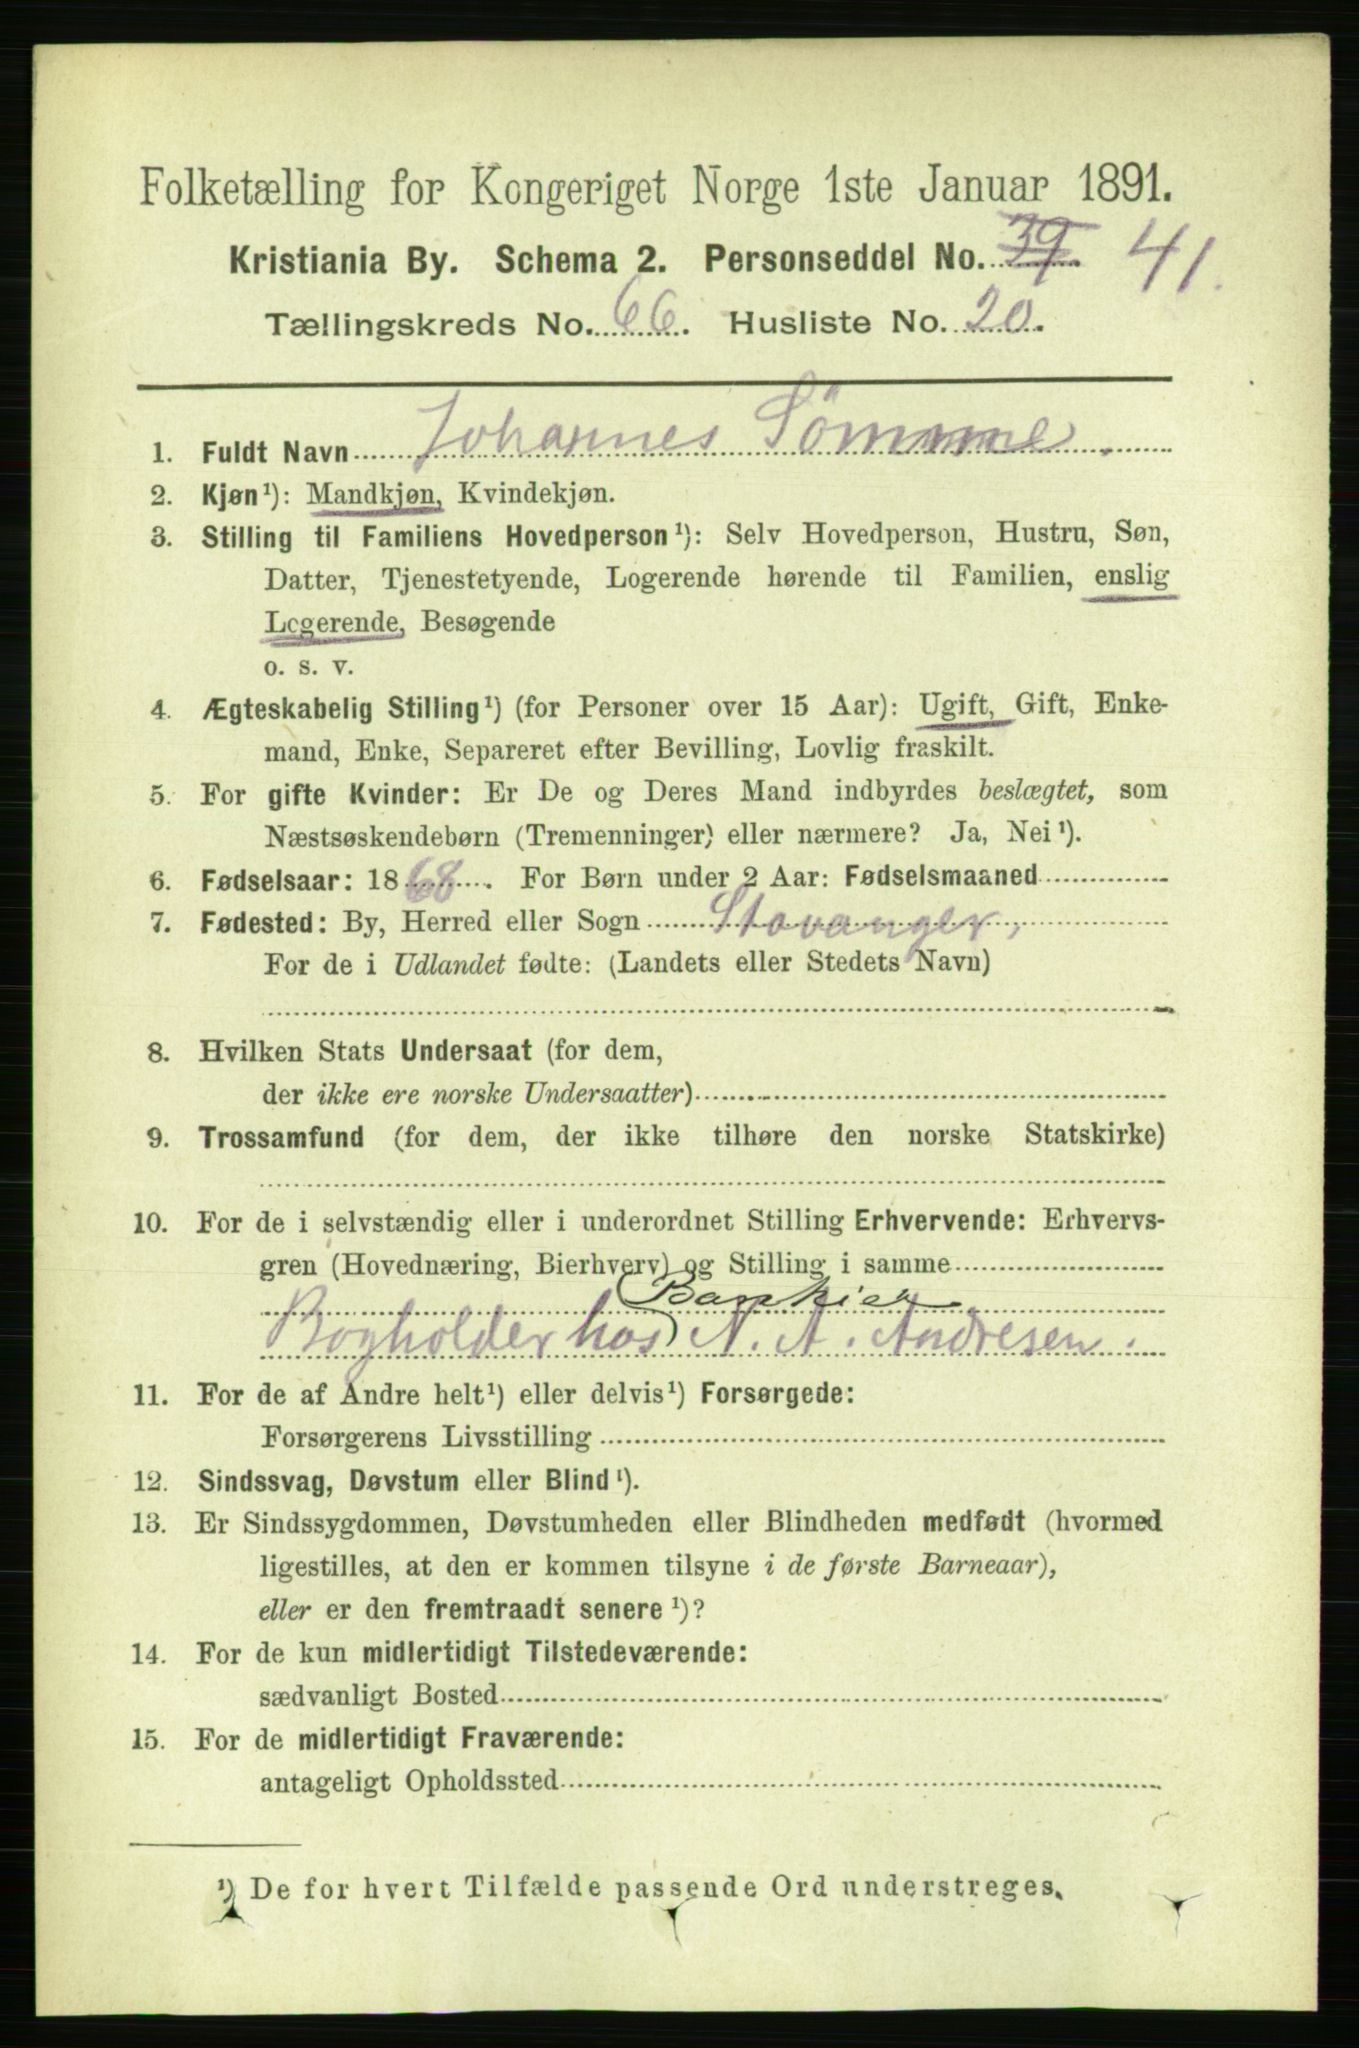 Folketælling for Kongeriget Norge 1ste Januar 1891.
Kristiania By. Schema 2. Personseddel No. 39. 41.
Tællingskreds No. 66. Husliste No. 20.
1. Fuldt Navn Johannes Sömme.
2. Kjøn¹): Mandkjøn, Kvindekjøn.
3. Stilling til Familiens Hovedperson¹): Selv Hovedperson, Hustru, Søn,
Datter, Tjenestetyende, Logerende hørende til Familien, enslig
Logerende, Besøgende
o. s. v.
4. Ægteskabelig Stilling¹) (for Personer over 15 Aar): Ugift, Gift, Enke-
mand, Enke, Separeret efter Bevilling, Lovlig fraskilt.
5. For gifte Kvinder: Er De og Deres Mand indbyrdes beslægtet, som
Næstsøskendebørn (Tremenninger) eller nærmere? Ja, Nei¹).
6. Fødselsaar: 1868. For Børn under 2 Aar: Fødselsmaaned
7. Fødested: By, Herred eller Sogn Stavanger,
For de i Udlandet fødte: (Landets eller Stedets Navn)
8. Hvilken Stats Undersaat (for dem,
der ikke ere norske Undersaatter)
9. Trossamfund (for dem, der ikke tilhøre den norske Statskirke)
10. For de i selvstændig eller i underordnet Stilling Erhvervende: Erhvervs-
gren (Hovednæring, Bierhverv) og Stilling i samme
Bankier
Bogholder hos N. A. Andresen.
11. For de af Andre helt¹) eller delvis¹) Forsørgede:
Forsørgerens Livsstilling
12. Sindssvag, Døvstum eller Blind¹).
13. Er Sindssygdommen, Døvstumheden eller Blindheden medfødt (hvormed
ligestilles, at den er kommen tilsyne i de første Barneaar),
eller er den fremtraadt senere¹)?
14. For de kun midlertidigt Tilstedeværende:
sædvanligt Bosted
15. For de midlertidigt Fraværende:
antageligt Opholdssted
¹) De for hvert Tilfælde passende Ord understreges.